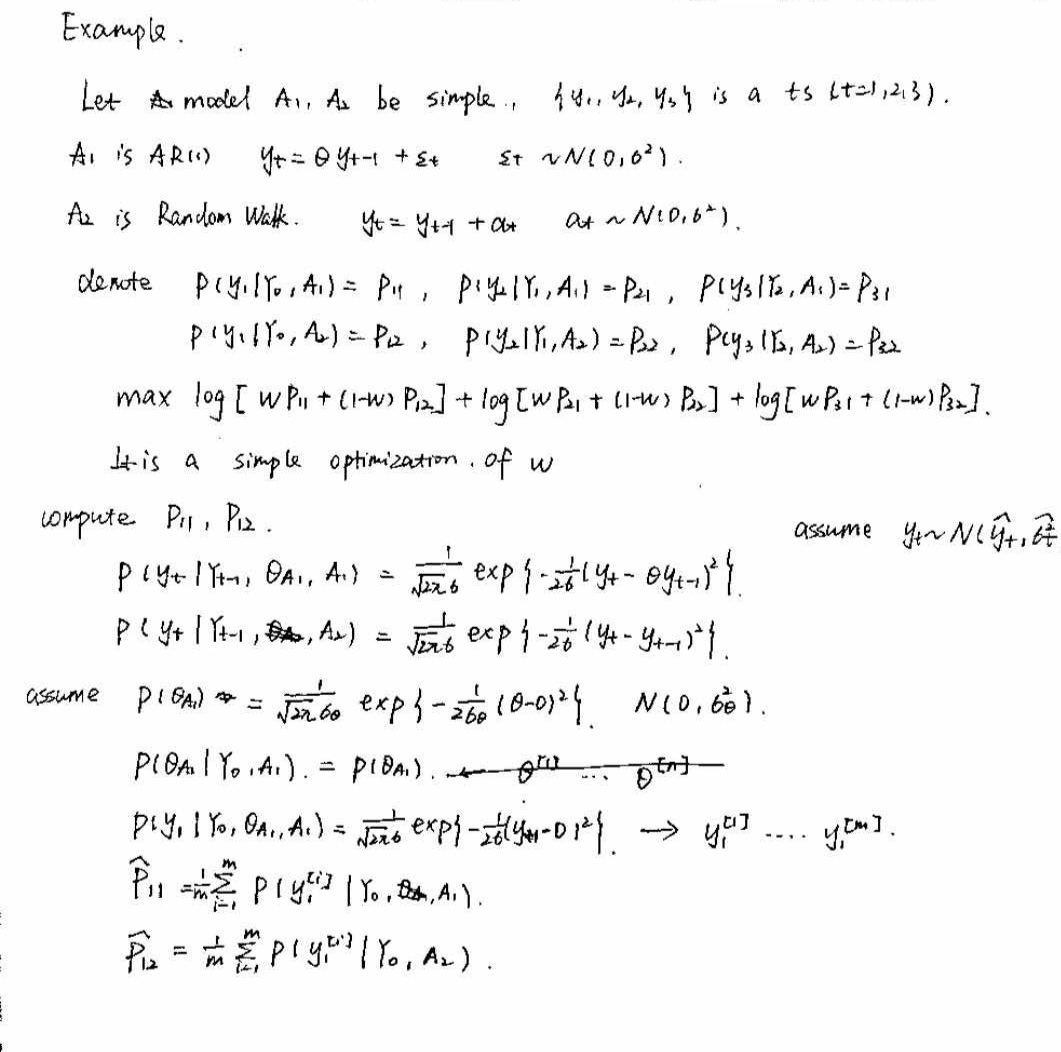 Example.
Let model A₁, A₂ be simple., {y₁, y₂, y₃} is a ts (t=1,2,3).
A₁ is AR(1) yₜ = θ yₜ₋₁ + εₜ εₜ ~ N(0, σ²).
A₂ is Random Walk. yₜ = yₜ₋₁ + aₜ aₜ ~ N(0, σ²).
denote p(y₁|Y₀, A₁) = P₁₁, p(y₂|Y₁, A₁) = P₂₁, p(y₃|Y₂, A₁) = P₃₁
p(y₁|Y₀, A₂) = P₁₂, p(y₂|Y₁, A₂) = P₂₂, p(y₃|Y₂, A₂) = P₃₂
max log[wP₁₁ + (1-w)P₁₂] + log[wP₂₁ + (1-w)P₂₂] + log[wP₃₁ + (1-w)P₃₂].
It is a simple optimization. of w
compute P₁₁, P₁₂.
assume yₜ ~ N(ŷₜ, σ̂ₜ²
p(yₜ|Yₜ₋₁, θ_A₁, A₁) = 1/(√2π σ) exp{-1/2σ (yₜ - θyₜ₋₁)²}.
p(yₜ|Yₜ₋₁, , A₂) = 1/(√2π σ) exp{-1/2σ (yₜ - yₜ₋₁)²}.
assume p(θ_A₁) = 1/(√2π σ_θ) exp{-1/2σ_θ (θ-0)²}. N(0, σ_θ²).
p(θ_A₁|Y₀, A₁). = p(θ_A₁). θ^[1] ... θ^[n]
p(y₁|Y₀, θ_A₁, A₁) = 1/(√2π σ) exp{-1/2σ (y₁ - 0)²}. → y₁^[1] .... y₁^[m].
P̂₁₁ = 1/m Σ_{i=1}^m p(y₁^[i] | Y₀, , A₁).
P̂₁₂ = 1/m Σ_{i=1}^m p(y₁^[i] | Y₀, A₂).